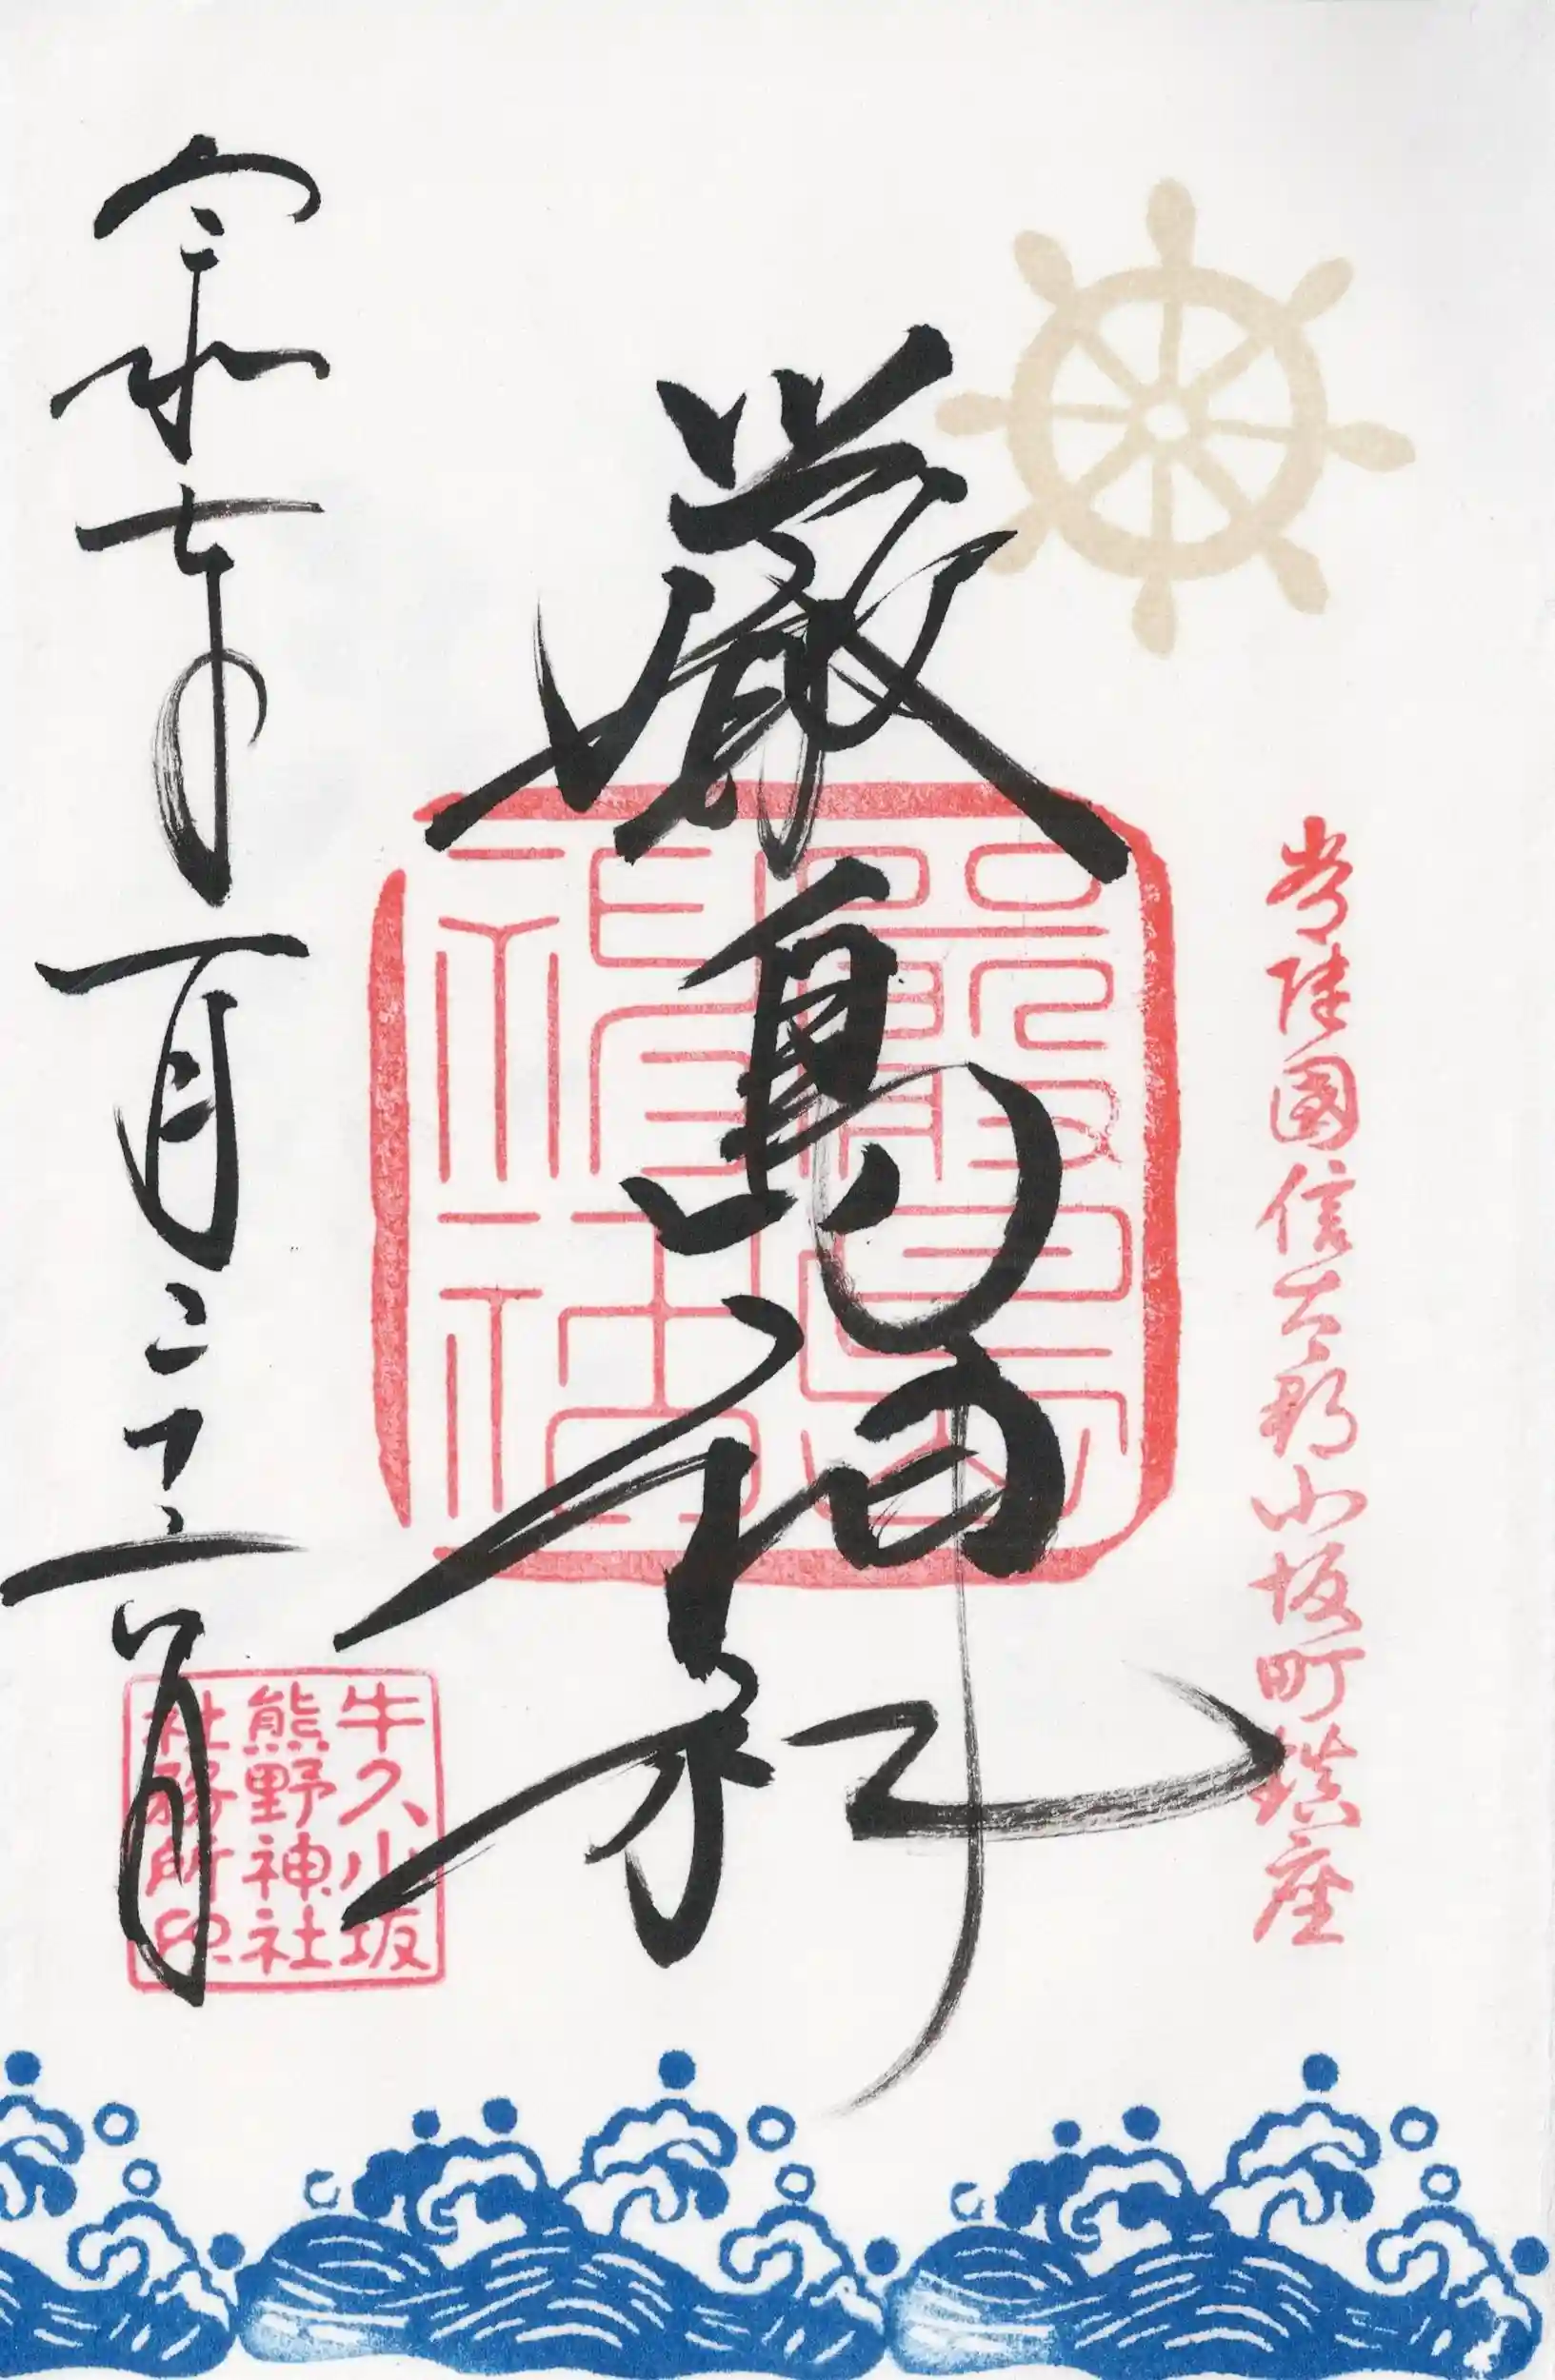 常陸國信太郡小坂町鎮座
厳島神社
嚴島神社
令和七年一月
牛久小坂
熊野神社
社務所印